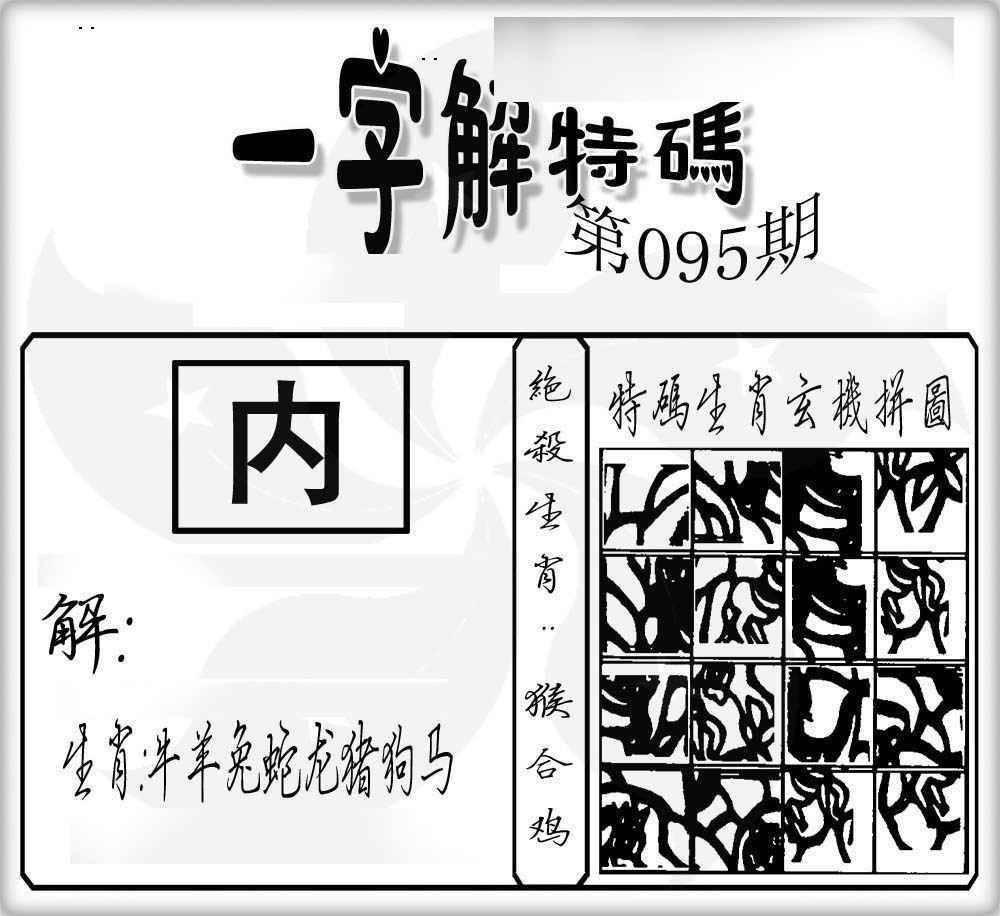 一字解特碼
第095期
内
解:
生肖:牛羊兔蛇龙猪狗马
絶殺生肖:猴合鸡
特碼生肖玄機拼圖